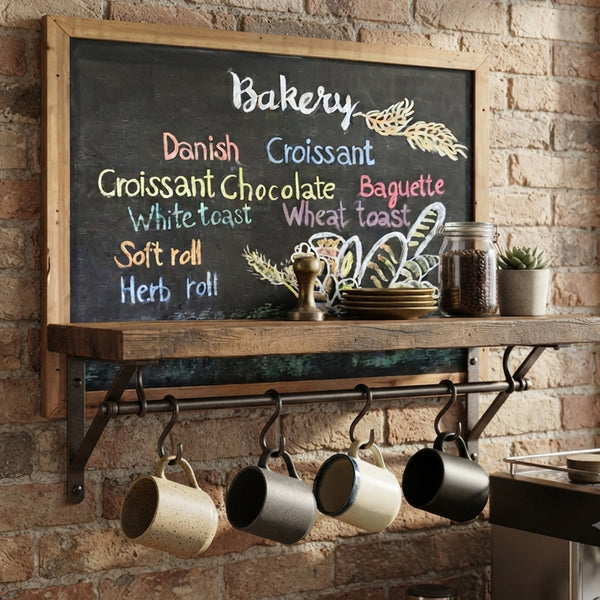 Bakery
Danish Croissant
Croissant Chocolate Baguette
White toast Wheat toast
Soft roll
Herb roll